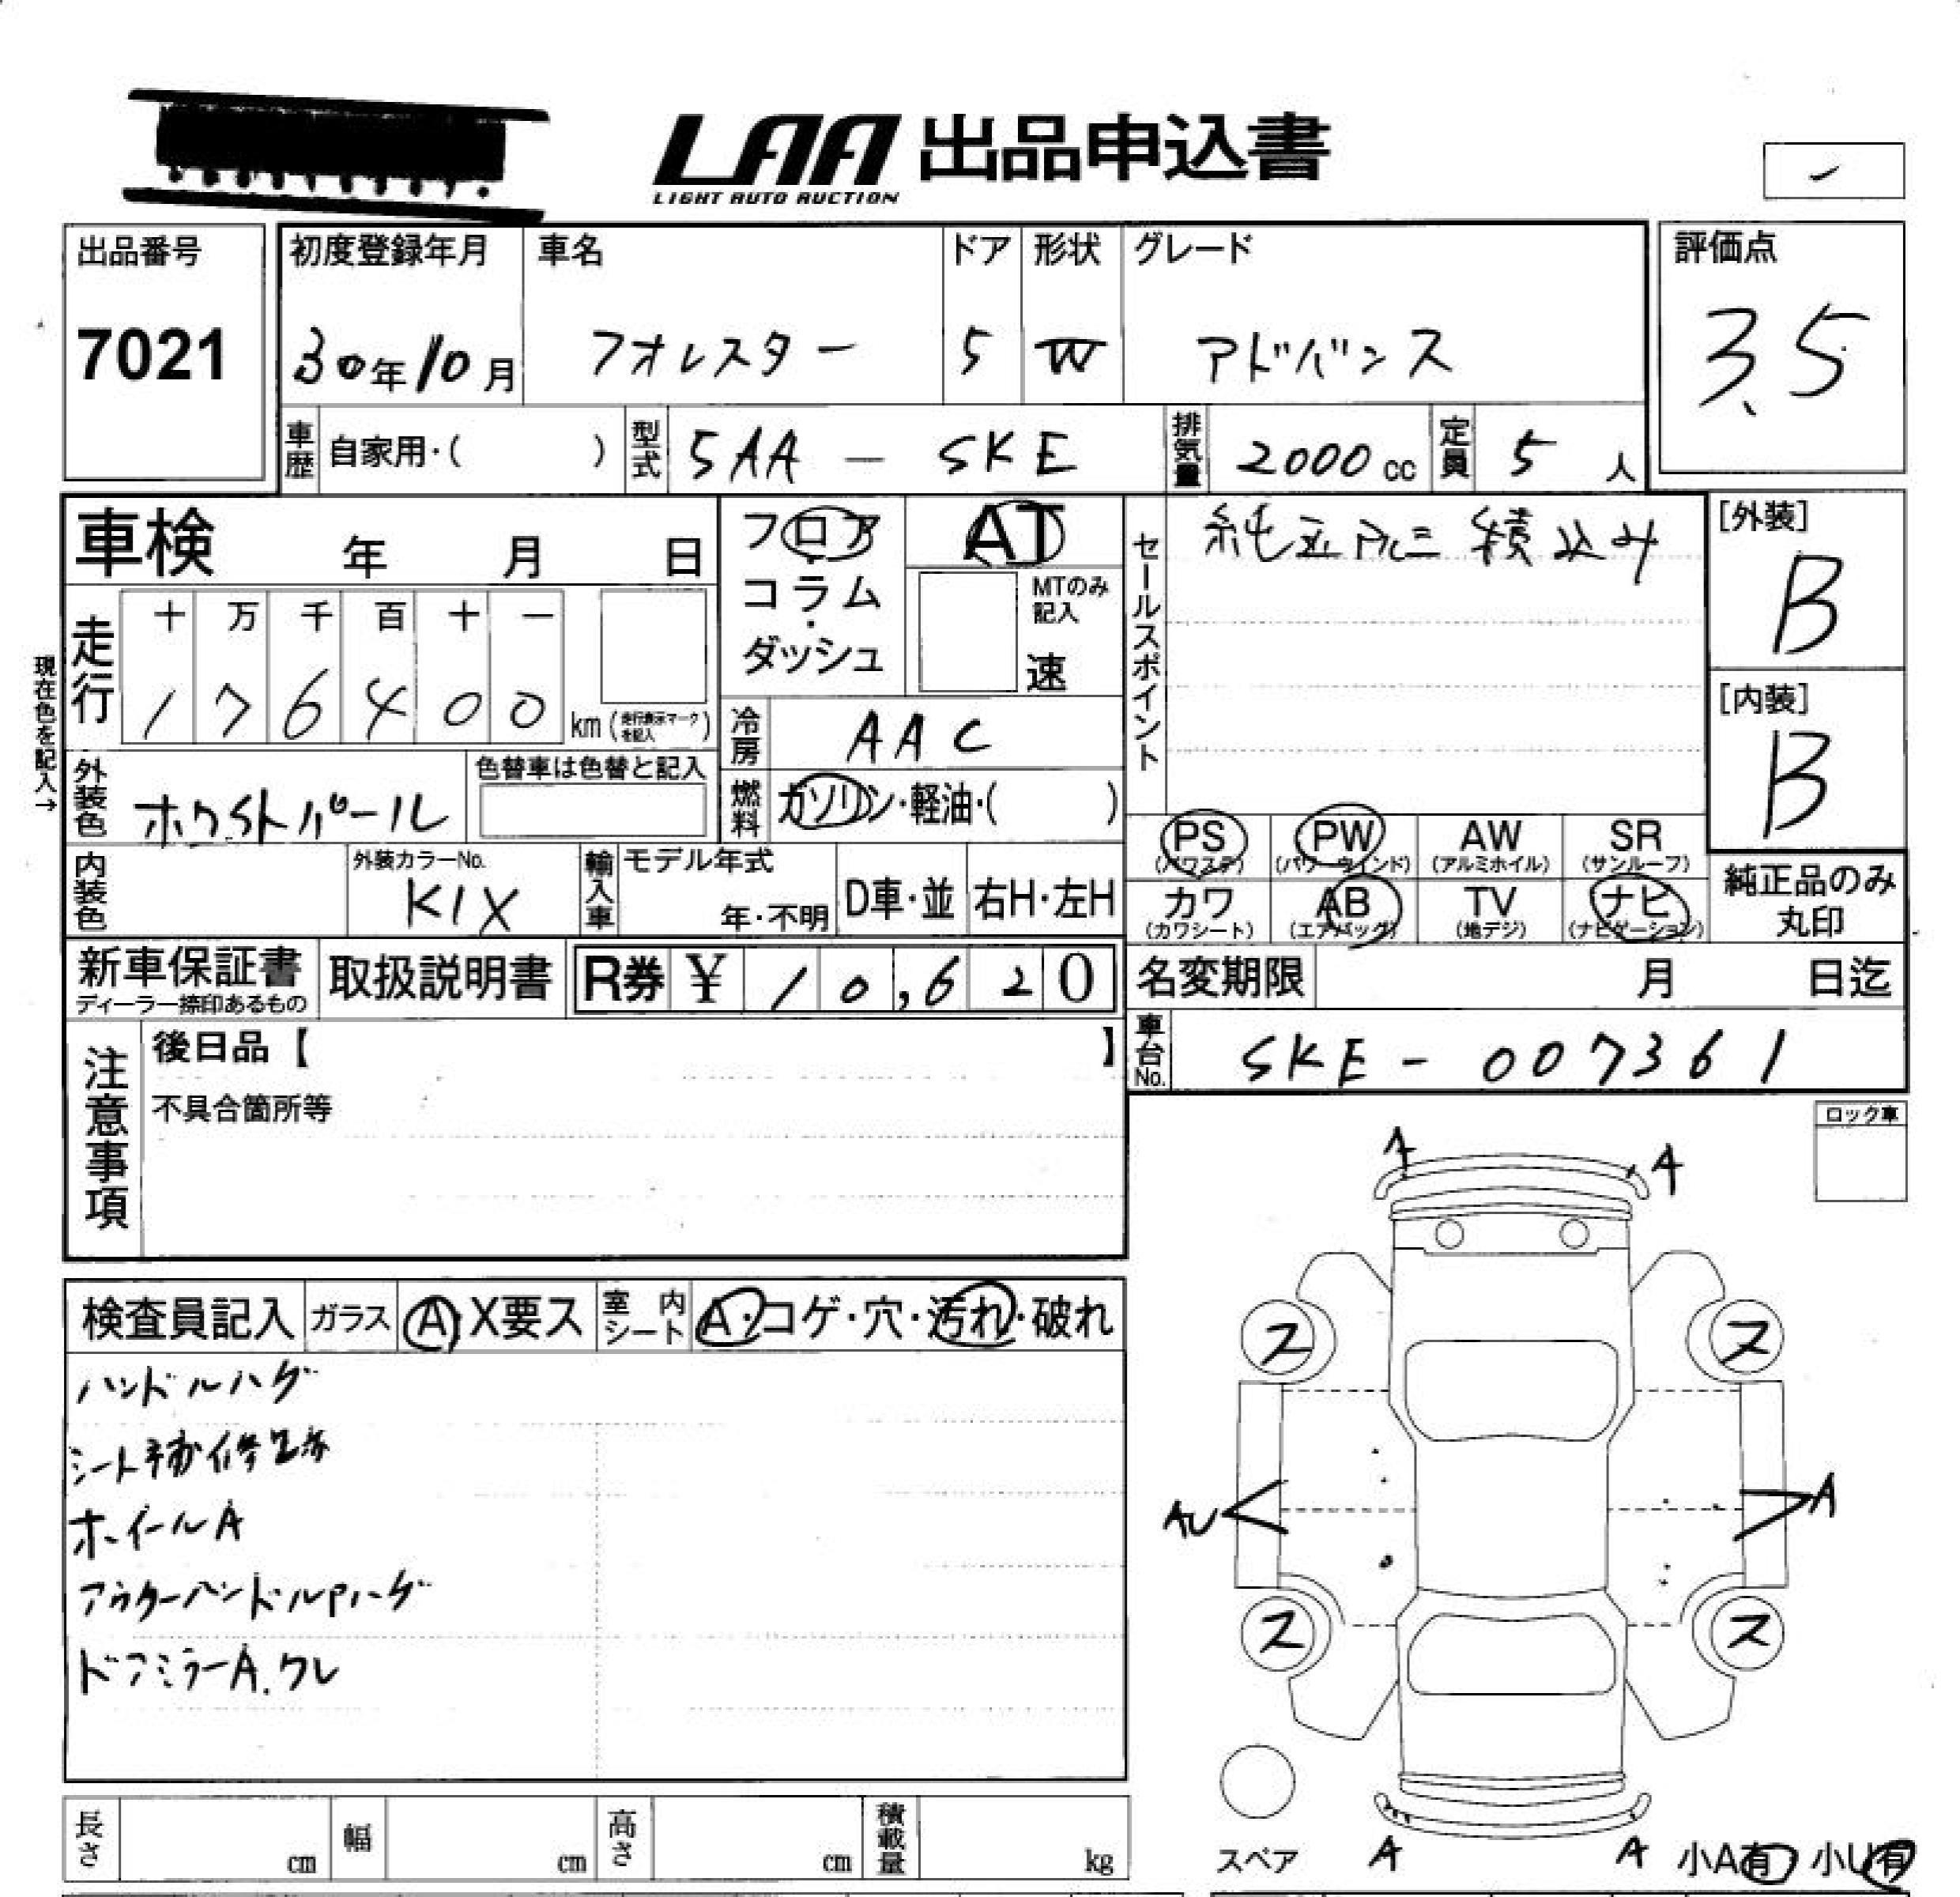 LAA 出品申込書
LIGHT AUTO AUCTION
出品番号 初度登録年月 車名 ドア 形状 グレード 評価点
7021 30年10月 フォレスター 5 W アドバンス 3.5
車歴 自家用・( ) 型式 5AA - SKE 排気量 2000 cc 定員 5 人
車検 年 月 日
フロア・コラム・ダッシュ
AT
MTのみ記入
速
セールスポイント
積込み
[外装]
B
[内装]
B
現在色を記入→
走行 十 万 千 百 十 一
1 7 6 4 0 0 km (走行表示マークを記入)
冷房 AAC
外装色 ホワイトパール
色替車は色替と記入
燃料 ガソリン・軽油・( )
PS (パワステ) PW (パワーウインド) AW (アルミホイル) SR (サンルーフ)
カワ (カワシート) AB (エアバッグ) TV (地デジ) ナビ (ナビゲーション)
純正品のみ丸印
内装色
外装カラーNo. K1X
輸入車 モデル年式 年・不明 D車・並 右H・左H
新車保証書 ディーラー捺印あるもの
取扱説明書
R券 ¥ 10,620
名変期限 月 日迄
車台No. SKE - 007361
注意事項
後日品【 】
不具合箇所等
ロック車
検査員記入 ガラス A・X要ス 室内シート A・コゲ・穴・汚れ・破れ
ハンドルハゲ
シート補修跡
ホイールA
アウターハンドルPハゲ
ドアミラーA.ワレ
A A
ス ス
AU A
ス ス
スペア A A 小A有 小U有
長さ cm 幅 cm 高さ cm 積載量 kg